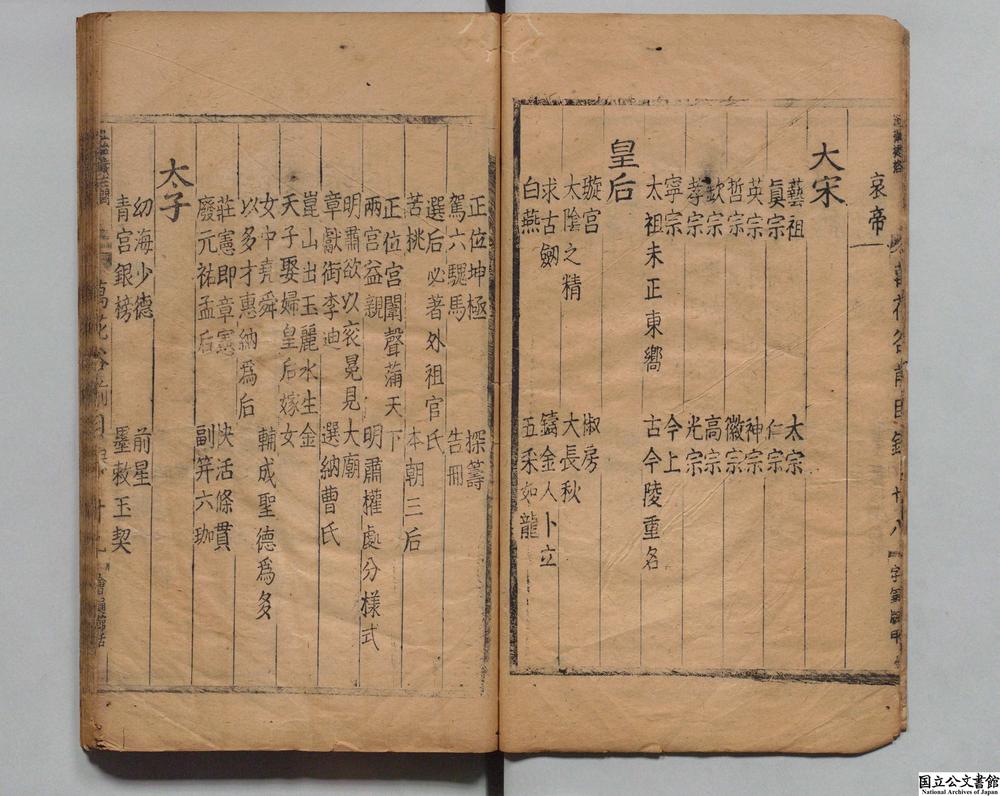 哀帝
大宋
藝祖 太宗
眞宗 仁宗
英宗 神宗
哲宗 徽宗
欽宗 高宗
孝宗 光宗
寧宗 今上
太祖未正東嚮 古今陵重名
皇后
璇宮 椒房
太陰之精 大長秋
求古劒 鑄金人卜立
白燕 五采如龍
正位坤極 探籌
駕六騩馬 告冊
選后必著外祖官氏
苦挑 本朝三后
正位宮闈聲蒲天下
兩宮益親 明肅權處分樣式
明肅欲以衮冕見大廟
章獻銜李迪 選納曹氏
崑山出玉麗水生金
天子娶婦皇后嫁女
女中堯舜 輔成聖德爲多
以多才惠納爲后
莊憲即章憲 快活條貫
廢元祐孟后 副笄六珈
太子
幼海少德 前星
青宮銀榜 墨敕玉契
萬花谷前目
国立公文書館
National Archives of Japan